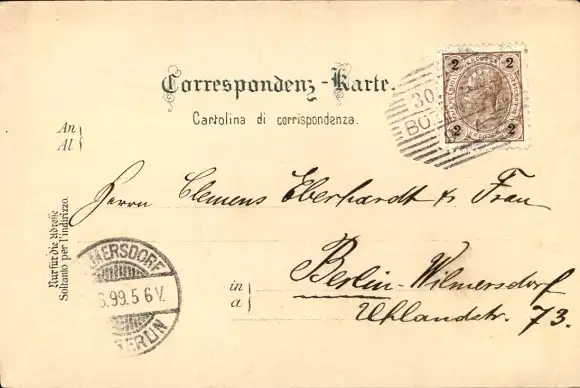 Correspondenz-Karte.
Cartolina di corrispondenza.
2 2
2 2
30.
BOZ
An
Al
Herrn Clemens Eberhardt & Frau
Nur für die Adresse
Soltanto per l'indirizzo.
in
a
Berlin-Wilmersdorf
Uhlandstr. 73.
MERSDORF
6.99.5 6V.
BERLIN